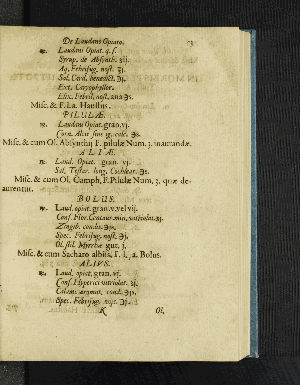 De Laudano Opiato.
℞. Laudani Opiat. q. s.
Syrup. de Absynth. ʒij.
Aq. Febrifug. nost. ℥j.
Sal. Card. benedict. ℈j.
Ext. Caryophyllor.
Elix. Febril. nost. ana ℈s.
Misc. & F. l. a. Haustus.
PILULÆ.
℞. Laudani Opiat. gran. vj.
Corn. Alcis sine ig. calc. ℈s.
Misc. & cum Ol. Absynthij F. pilulæ Num. 3. inaurandæ.
ALIÆ.
℞. Laud. Opiat. gran. vj.
Sal. Testar. lung. Cochlear. ℈s.
Misc. & cum Ol. Camph. F. Pilulæ Num. 3. quæ de-
aurentur.
BOLUS.
℞. Laud. opiat. gran. v. vel vij.
Conf. Flor. Centaur. min. vitriolat. ʒj.
Zingib. condit. ℈s.
Spec. Febrifug. nost. ℈j.
Ol. stil. Myrrhæ gut. j.
Misc. & cum Sacharo albiss. F. l. a. Bolus.
ALIUS.
℞. Laud. opiat. gran. vj.
Conf. Hyperici vitriolat. ʒj.
Calam. aromat. cond. ℈s.
Spec. Febrifug. nost. ℈j.
K Ol.